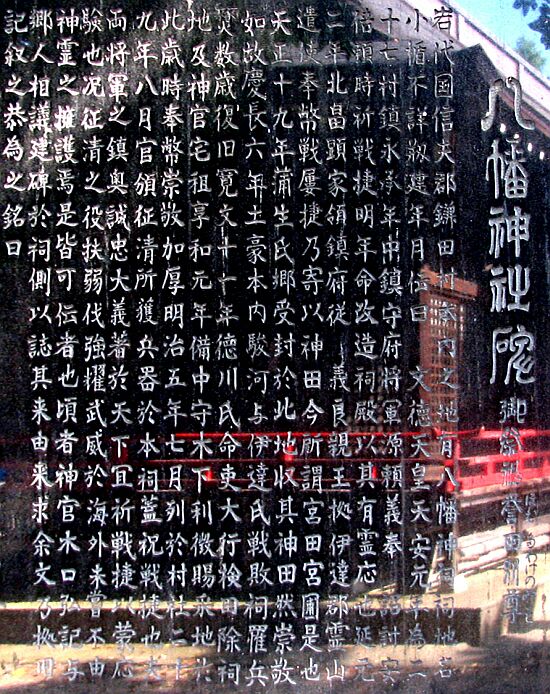 八幡神社碑 御祭神誉田別尊
岩代国信夫郡鎌田村内之地有八幡神祠祠地若
小楯不詳剏建年月伝曰 文徳天皇天安元年為二
十七村鎮永承年中鎮守府将軍源頼義奉 詔討安
倍頼時祈戦捷明年命改造祠殿以其有霊応也延元
二年北畠顕家領鎮府従 義良親王拠伊達郡霊山
遣使奉幣戦屡捷乃寄以神田今所謂宮田宮圃是也
天正十九年蒲生氏郷受封於此地収其神田然崇敬
如故慶長六年土豪本内駿河与伊達氏戦敗祠罹兵
燹数歳復旧寛文十一年徳川氏命吏大行検田除祠
地及神官宅租享和元年備中守木下利徽賜采地於
此歳時奉幣崇敬加厚明治五年七月列於村社二十
九年八月官頒征清所獲兵器於本祠蓋祝戦捷也夫
両将軍之鎮奥誠忠大義著於天下宜祈戦捷以蒙応
験也况征清之役扶弱伐強耀武威於海外未嘗不由
神霊之擁護焉是皆可伝者也頃者神官水口弘記与
郷人相議建碑於祠側以誌其来由来求余文乃拠旧
記叙之恭為之銘曰